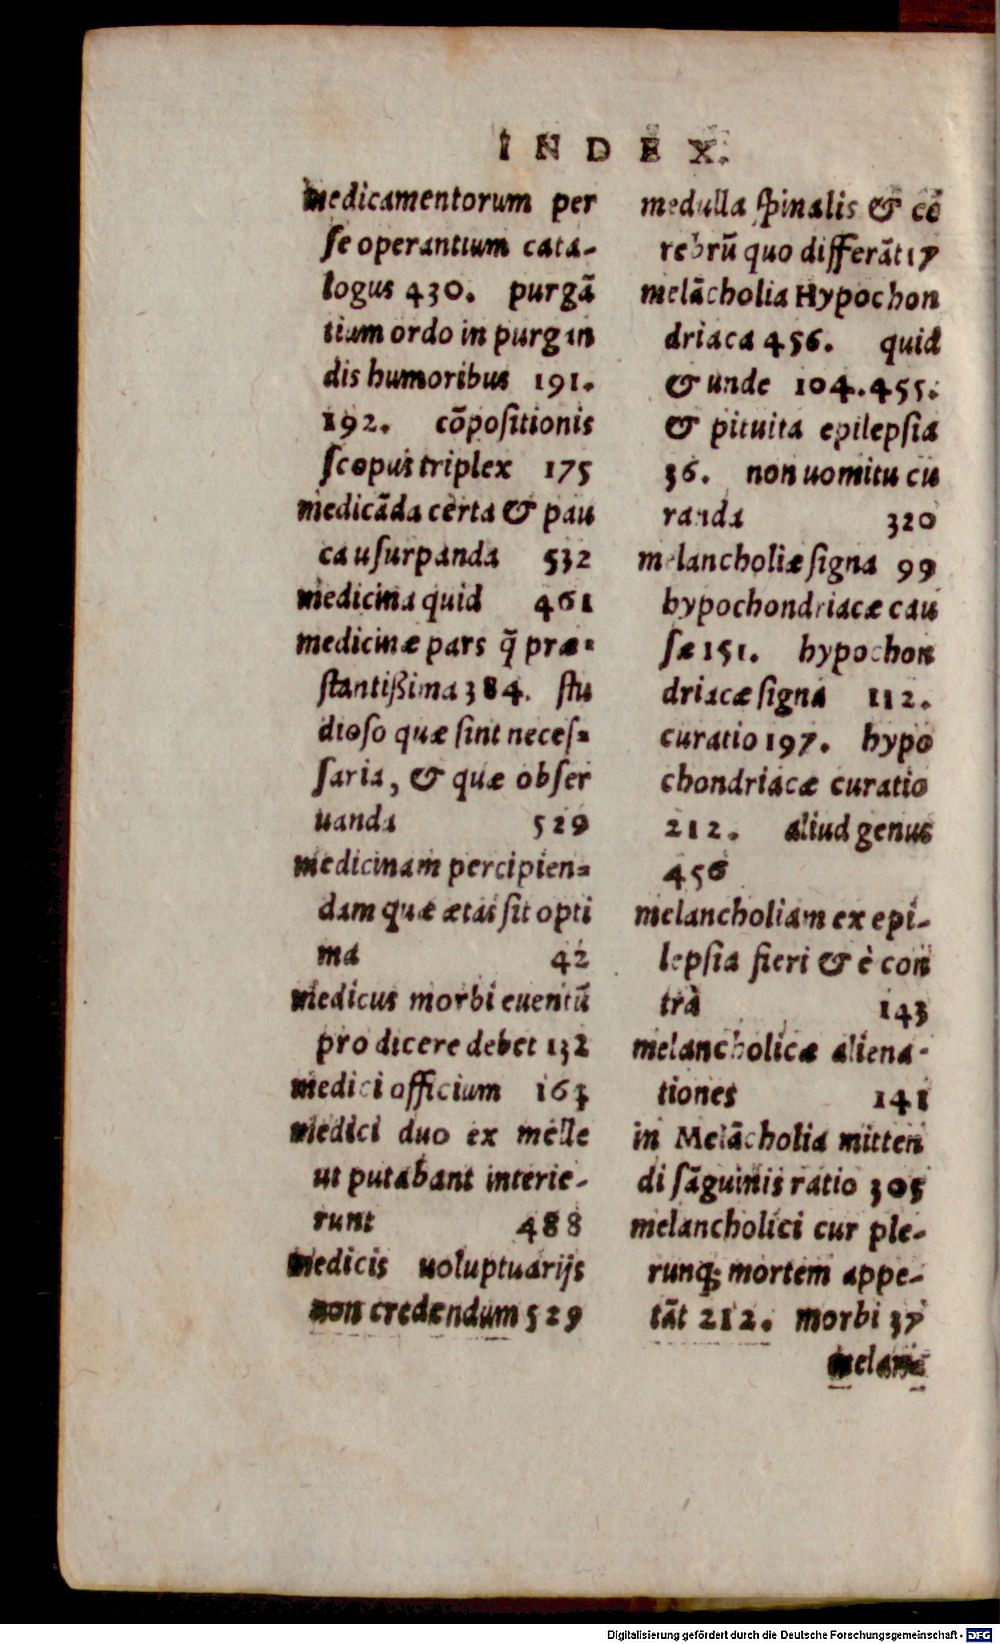 INDEX.
medicamentorum per
ſe operantium cata-
logus 430. purgã
tium ordo in purgan
dis humoribus 191.
192. cõpoſitionis
ſcopus triplex 175
medicãda certa & pau
ca uſurpanda 532
medicina quid 461
medicinæ pars q̃ præ=
ſtantißima 384. ſtu
dioſo quæ ſint neceſ=
ſaria, & quæ obſer
uanda 529
medicinam percipien=
dam quæ ætas ſit opti
ma 42
medicus morbi euentũ
prodicere debet 132
medici officium 163
medici duo ex melle
ut putabant interie-
runt 488
medicis uoluptuarijs
non credendum 529
medulla ſpinalis & ce
rebrũ quo differãt 17
melãcholia Hypochon
driaca 456. quid
& unde 104.455.
& pituita epilepſia
36. non uomitu cu
randa 320
melancholiæ ſigna 99
hypochondriacæ cau
ſæ 151. hypochon
driacæ ſigna 112.
curatio 197. hypo
chondriacæ curatio
212. aliud genus
456
melancholiam ex epi-
lepſia fieri & è con
trà 143
melancholicæ aliena-
tiones 141
in Melãcholia mitten
di ſãguinis ratio 305
melancholici cur ple-
runq; mortem appe-
tãt 212. morbi 37
Digitalisierung gefördert durch die Deutsche Forschungsgemeinschaft - DFG